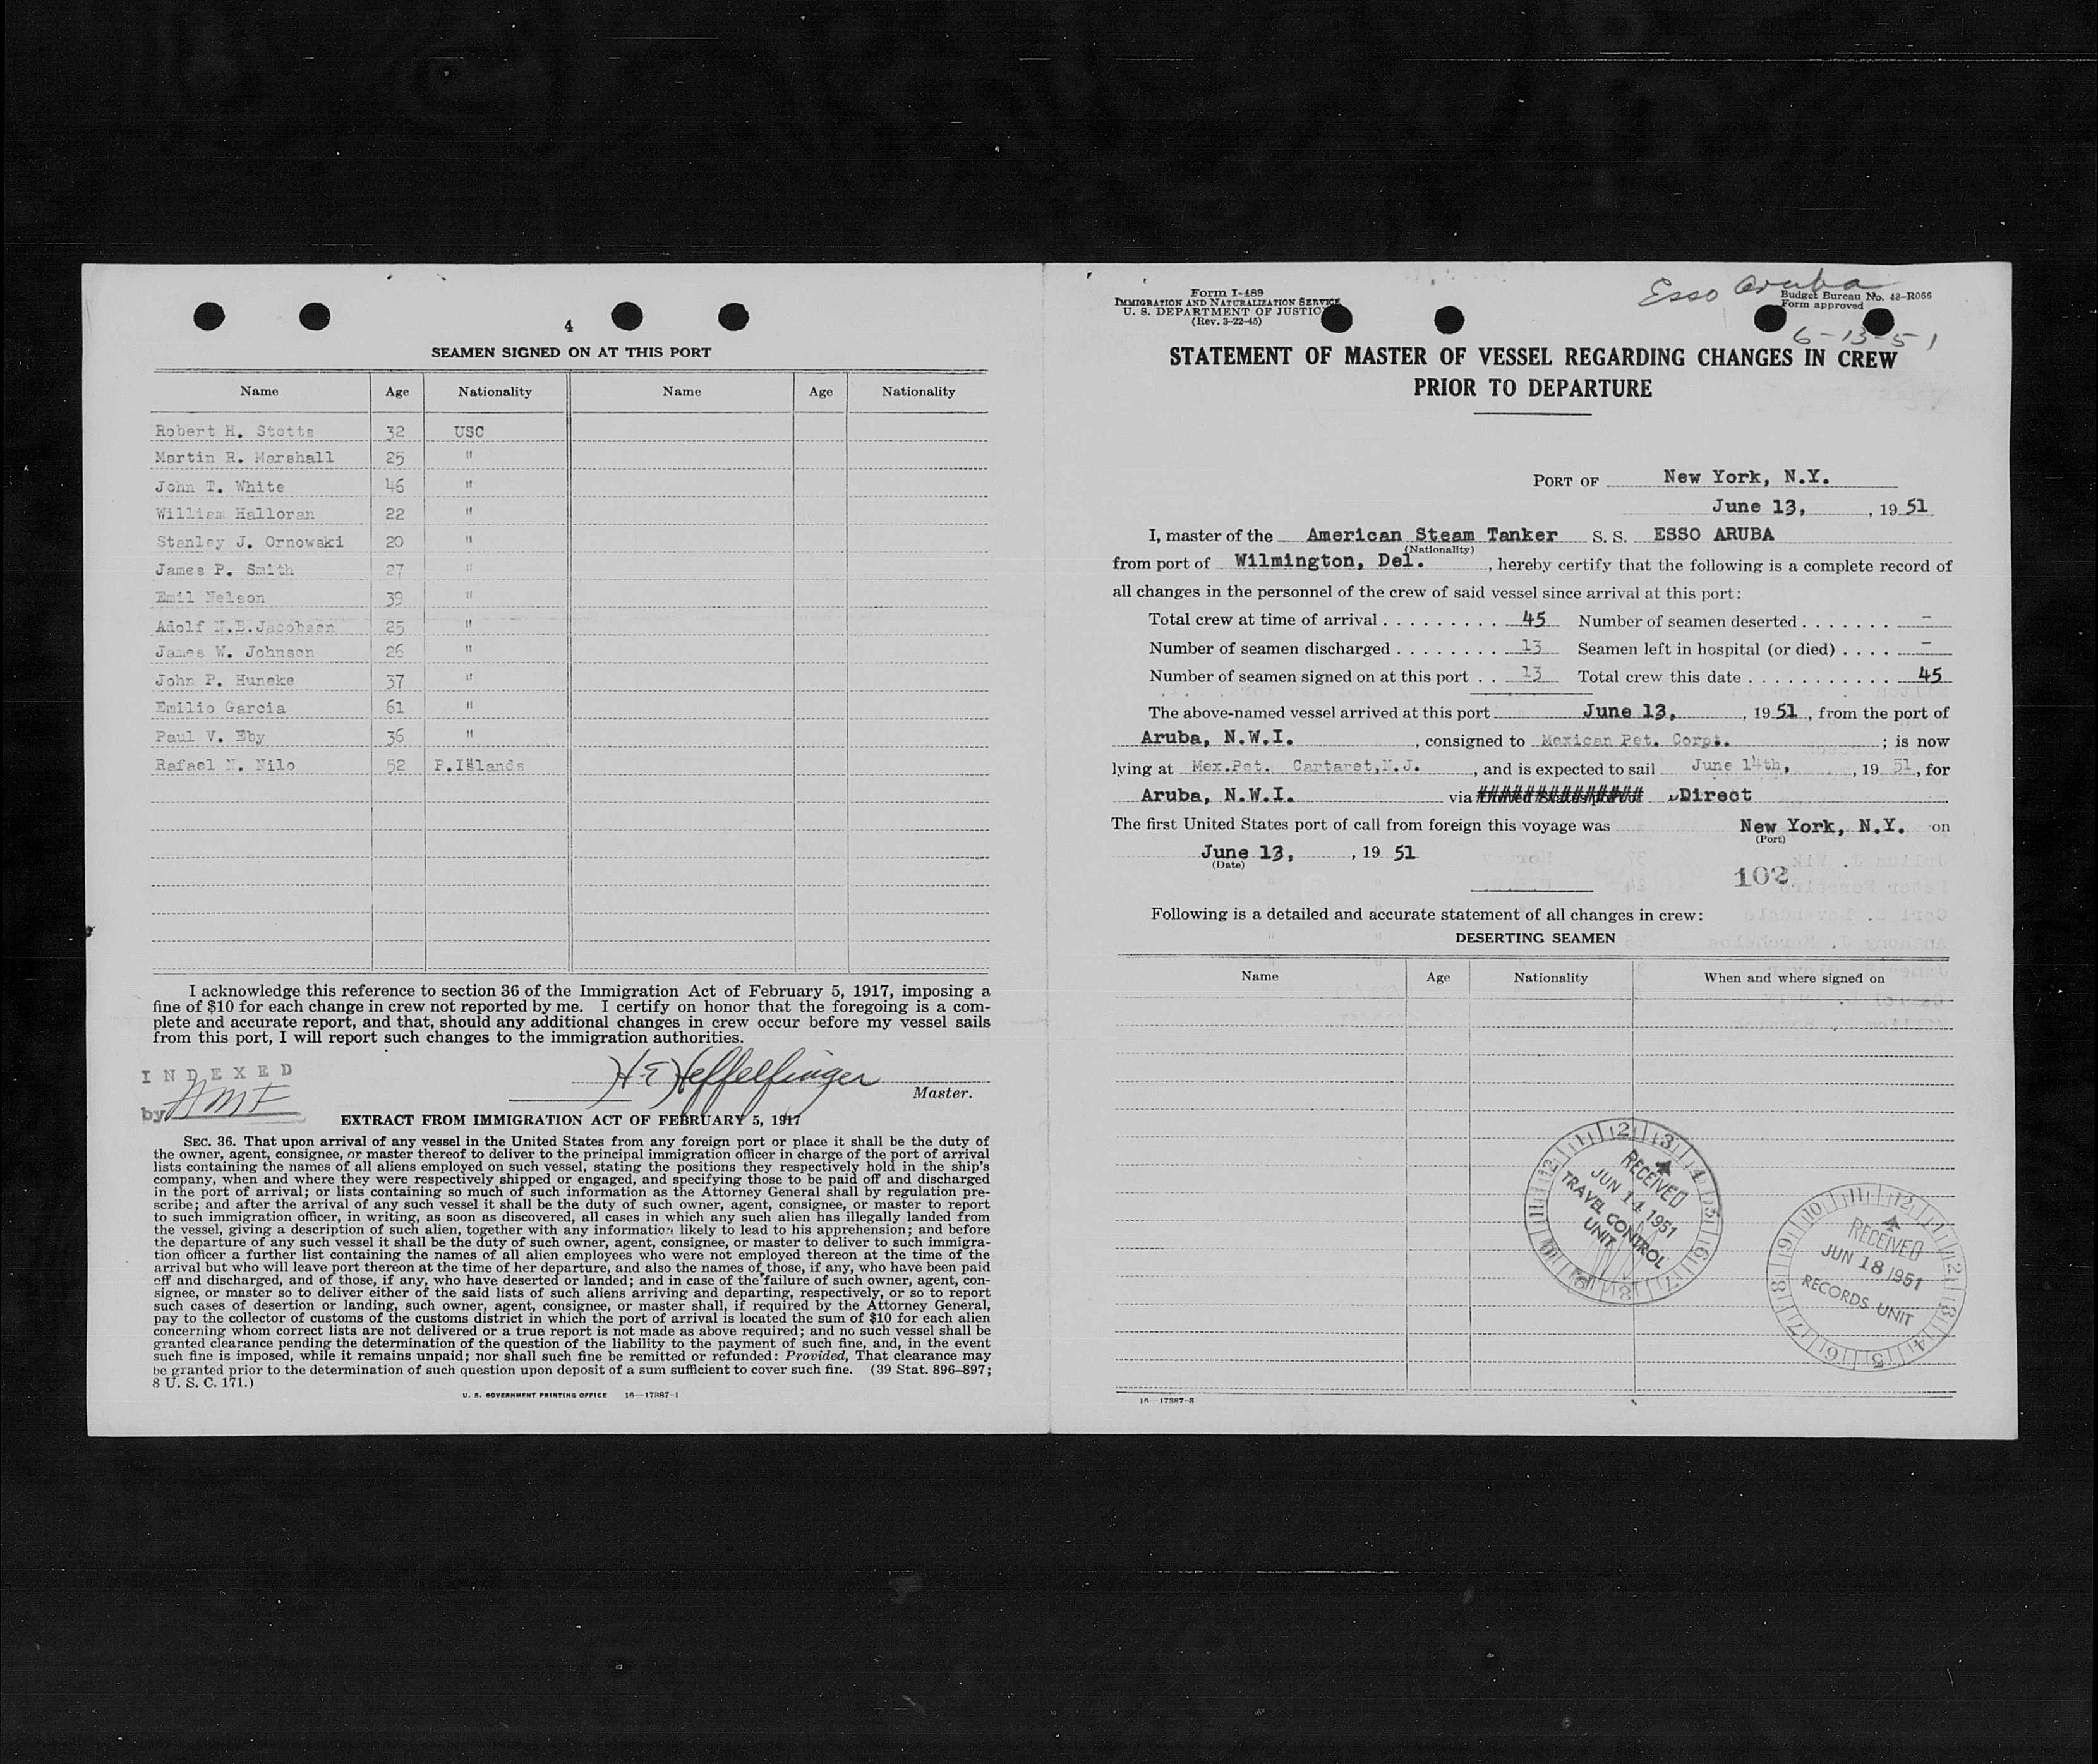 4
SEAMEN SIGNED ON AT THIS PORT
Name Age Nationality Name Age Nationality
Robert H. Stotts 32 USC
Martin R. Marshall 25 "
John T. White 46 "
William Halloran 22 "
Stanley J. Ornowski 20 "
James P. Smith 27 "
Emil Nelson 39 "
Adolf N.D.Jacobsen 25 "
James W. Johnson 26 "
John P. Huneke 37 "
Emilio Garcia 61 "
Paul V. Eby 36 "
Rafael N. Nilo 52 P.Islands
I acknowledge this reference to section 36 of the Immigration Act of February 5, 1917, imposing a
fine of $10 for each change in crew not reported by me. I certify on honor that the foregoing is a com-
plete and accurate report, and that, should any additional changes in crew occur before my vessel sails
from this port, I will report such changes to the immigration authorities.
INDEXED
by AMF
H E Heffelfinger
Master.
EXTRACT FROM IMMIGRATION ACT OF FEBRUARY 5, 1917
SEC. 36. That upon arrival of any vessel in the United States from any foreign port or place it shall be the duty of
the owner, agent, consignee, or master thereof to deliver to the principal immigration officer in charge of the port of arrival
lists containing the names of all aliens employed on such vessel, stating the positions they respectively hold in the ship's
company, when and where they were respectively shipped or engaged, and specifying those to be paid off and discharged
in the port of arrival; or lists containing so much of such information as the Attorney General shall by regulation pre-
scribe; and after the arrival of any such vessel it shall be the duty of such owner, agent, consignee, or master to report
to such immigration officer, in writing, as soon as discovered, all cases in which any such alien has illegally landed from
the vessel, giving a description of such alien, together with any information likely to lead to his apprehension; and before
the departure of any such vessel it shall be the duty of such owner, agent, consignee, or master to deliver to such immigra-
tion officer a further list containing the names of all alien employees who were not employed thereon at the time of the
arrival but who will leave port thereon at the time of her departure, and also the names of those, if any, who have been paid
off and discharged, and of those, if any, who have deserted or landed; and in case of the failure of such owner, agent, con-
signee, or master so to deliver either of the said lists of such aliens arriving and departing, respectively, or so to report
such cases of desertion or landing, such owner, agent, consignee, or master shall, if required by the Attorney General,
pay to the collector of customs of the customs district in which the port of arrival is located the sum of $10 for each alien
concerning whom correct lists are not delivered or a true report is not made as above required; and no such vessel shall be
granted clearance pending the determination of the question of the liability to the payment of such fine, and, in the event
such fine is imposed, while it remains unpaid; nor shall such fine be remitted or refunded: Provided, That clearance may
be granted prior to the determination of such question upon deposit of a sum sufficient to cover such fine. (39 Stat. 896–897;
8 U. S. C. 171.)
U. S. GOVERNMENT PRINTING OFFICE 16—17387-1
Form I-489
IMMIGRATION AND NATURALIZATION SERVICE
U. S. DEPARTMENT OF JUSTIC
(Rev. 3-22-45)
Esso Aruba
Budget Bureau No. 43-R066
Form approved
6-13-51
STATEMENT OF MASTER OF VESSEL REGARDING CHANGES IN CREW
PRIOR TO DEPARTURE
PORT OF New York, N.Y.
June 13, , 19 51
I, master of the American Steam Tanker S. S. ESSO ARUBA
(Nationality)
from port of Wilmington, Del. , hereby certify that the following is a complete record of
all changes in the personnel of the crew of said vessel since arrival at this port:
Total crew at time of arrival . . . . . . . . . 45 Number of seamen deserted . . . . . . . –
Number of seamen discharged . . . . . . . . 13 Seamen left in hospital (or died) . . . . –
Number of seamen signed on at this port . . 13 Total crew this date . . . . . . . . . . . 45
The above-named vessel arrived at this port June 13, , 19 51 , from the port of
Aruba, N.W.I. , consigned to Mexican Pet. Corp. ; is now
lying at Mex.Pet. Cartaret,N.J. , and is expected to sail June 14th, , 19 51 , for
Aruba, N.W.I. via Direct
The first United States port of call from foreign this voyage was New York, N.Y. on
(Port)
June 13, , 19 51
(Date)
102
Following is a detailed and accurate statement of all changes in crew:
DESERTING SEAMEN
Name Age Nationality When and where signed on
RECEIVED
JUN 14 1951
TRAVEL CONTROL
UNIT
RECEIVED
JUN 18 1951
RECORDS UNIT
16—17387-3